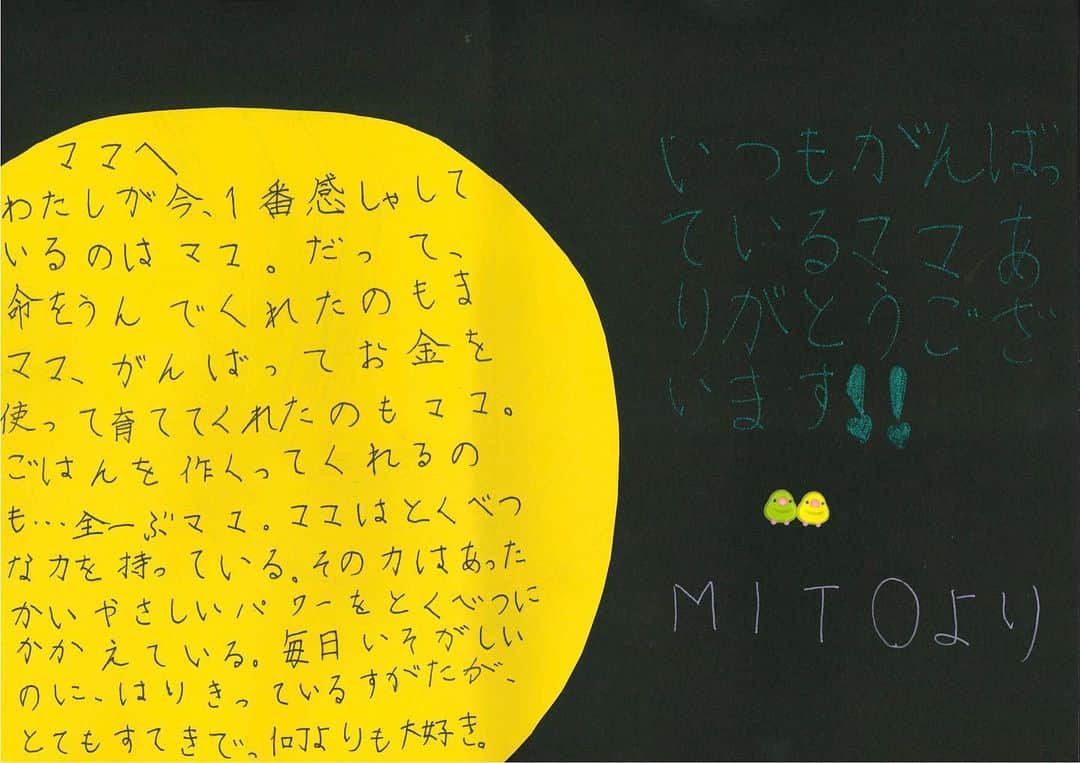 ママへ
わたしが今、1番感しゃして
いるのはママ。だって、
命をうんでくれたのもま
ママ、がんばってお金を
使って育ててくれたのもママ。
ごはんを作くってくれるの
も…全一ぶママ。ママはとくべつ
な力を持っている。その力はあった
かいやさしいパワーをとくべつに
かかえている。毎日いそがしい
のに、はりきっているすがたが、
とてもすてきでっ何よりも大好き。
いつもがんばっ
ているママあ
りがとうござ
います!!
MITOより